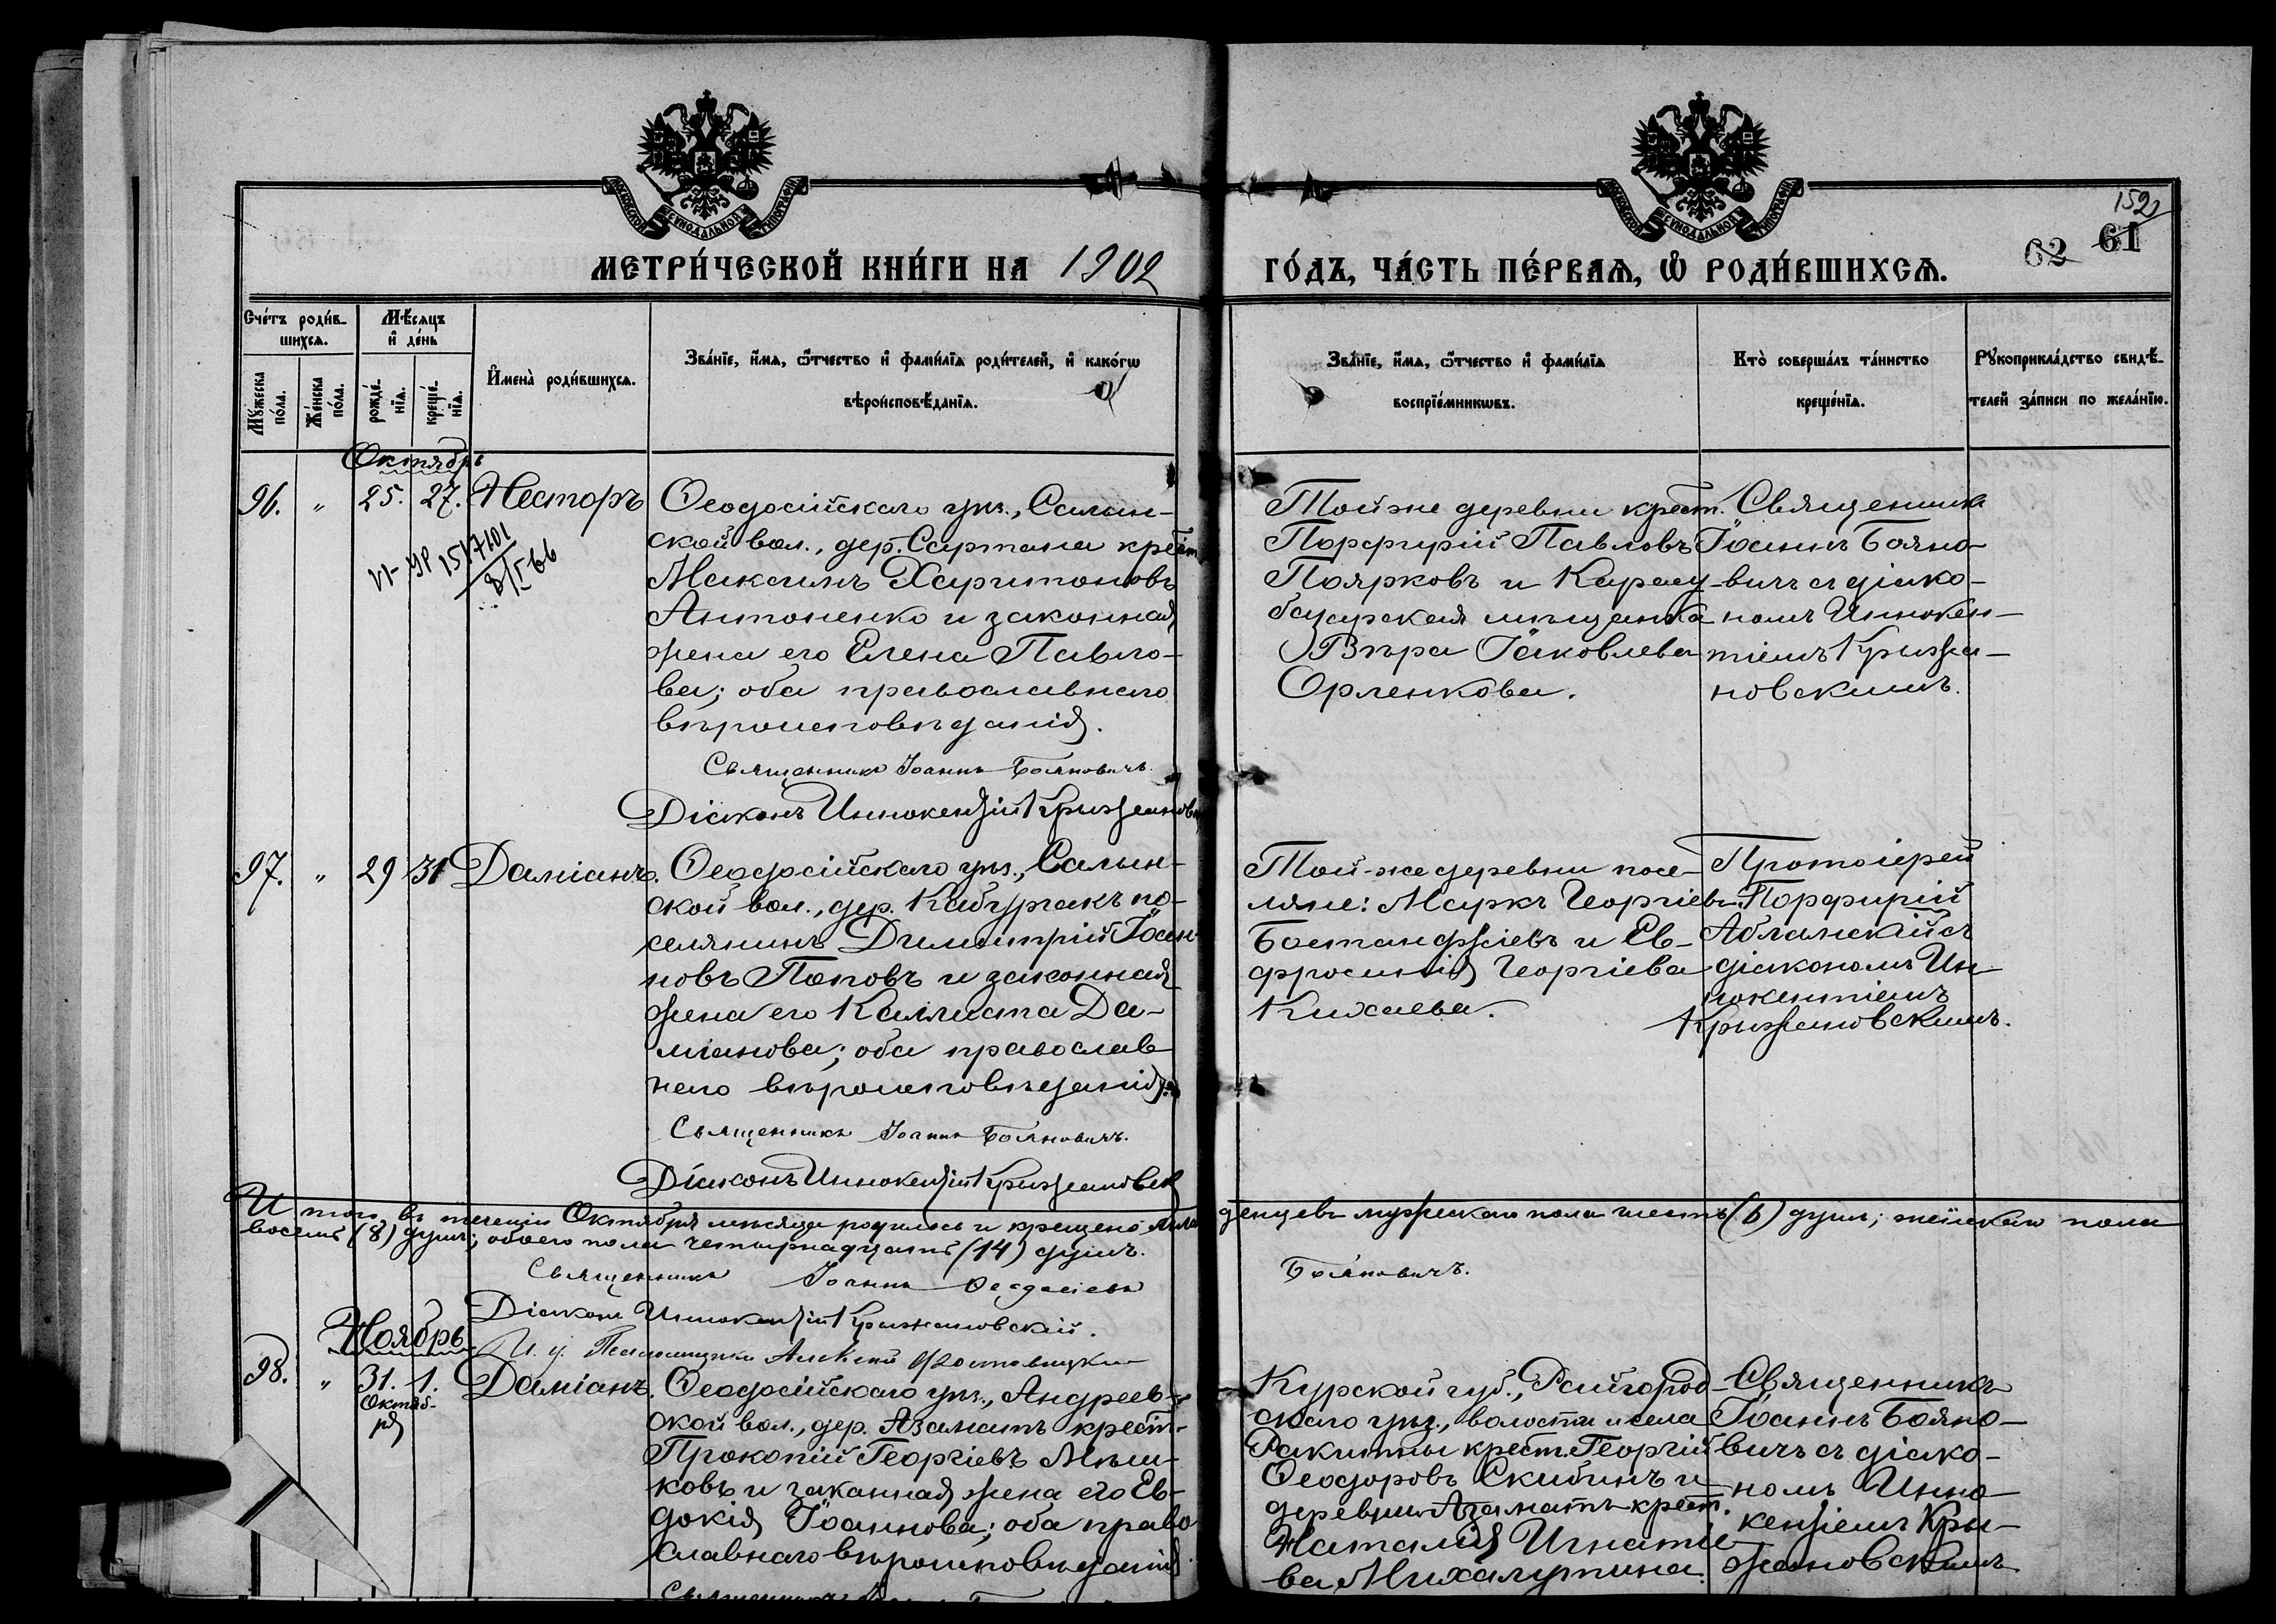 МОСКОВСКОЙ СѴНОДАЛЬНОЙ ТИПОГРАФІИ
МОСКОВСКОЙ СѴНОДАЛЬНОЙ ТИПОГРАФІИ
152
62 61
МЕТРИ́ЧЕСКОЙ КНИ́ГИ НА 1902
ГО́ДЪ, ЧА́СТЬ ПЕ́РВАЯ, Ѡ РОДИ́ВШИХСЯ.
Сче́тъ роди́в-
шихся.
Мꙋ́жеска по́ла.
Же́нска по́ла.
Мѣ́сяцъ
и҆ де́нь
рожде́-
нїя.
креще́-
нїя.
И҆мена̀ роди́вшихся.
Зва́нїе, и҆́мя, ѻ҆́тчество и҆ фами́лїя роди́телей, и҆ како́гѡ
вѣроисповѣ́данїя.
Зва́нїе, и҆́мя, ѻ҆́тчество и҆ фами́лїя
воспрїе́мникѡвъ.
Кто̀ соверша́лъ та́инство
креще́нїя.
Рꙋкоприкла́дство свидѣ́-
телей за́писи по жела́нїю.
Октябрь
96. " 25. 27. Несторъ
VI-УР 1517101
8/I 66
Ѳеодосійскаго уѣз., Салын-
ской вол., дер. Сартана крест.
Максимъ Харитоновъ
Антоненко и законная
жена его Елена Павло-
ва; оба православнаго
вѣроисповѣданія.
Священникъ Іоаннъ Бояновичъ
Діаконъ Иннокентій Крыжановск
Той же деревни крест.
Порфирій Павловъ
Поярковъ и Карасу-
базарская мѣщанка
Вѣра Іаковлева
Орленкова.
Священникъ
Іоаннъ Бояно-
вичъ съ діако-
номъ Иннокен-
тіемъ Крыжа-
новскимъ.
97. " 29 31 Даміанъ.
Ѳеодосійскаго уѣз., Салын-
ской вол., дер. Кабурчакъ по-
селянинъ Димитрій Іоан-
новъ Поповъ и законная
жена его Каллиста Да-
міанова; оба православ-
наго вѣроисповѣданія.
Священникъ Іоаннъ Бояновичъ.
Діаконъ Иннокентій Крыжановск
Той-же деревни посе-
ляне: Маркъ Георгіевъ
Бостанджіевъ и Ев-
фросинія Георгіева
Кихаева.
Протоіерей
Порфирій
Абламскій съ
діакономъ Ин-
нокентіемъ
Крыжановскимъ.
Итого въ теченіи Октября мѣсяца родилось и крещено мла
денцевъ мужескаго пола шесть (6) душъ; женскаго пола
восемь (8) душъ; обоего пола четырнадцать (14) душъ.
Священникъ Іоаннъ Ѳеодосіевъ
Бояновичъ.
Діаконъ Иннокентій Крыжановскій.
И. д. Псаломщика Алексій
Ноябрь
98. " 31. 1. Даміанъ.
Октяб-
ря
Ѳеодосійскаго уѣз., Андреев-
ской вол., дер. Азаматъ крест.
Прокопій Георгіевъ Мѣш-
ковъ и законная жена его Ев-
докія Іоаннова; оба право
славнаго вѣроисповѣданія.
Курской губ., Райгород-
скаго уѣз., волости и села
Ракитны крест. Георгій
Ѳеодоровъ Скибинъ и
деревни Азаматъ крест.
Наталія Игнатіе-
ва Михалутина.
Священникъ
Іоаннъ Бояно-
вичъ съ діако-
номъ Инно-
кентіемъ Кры-
жановскимъ